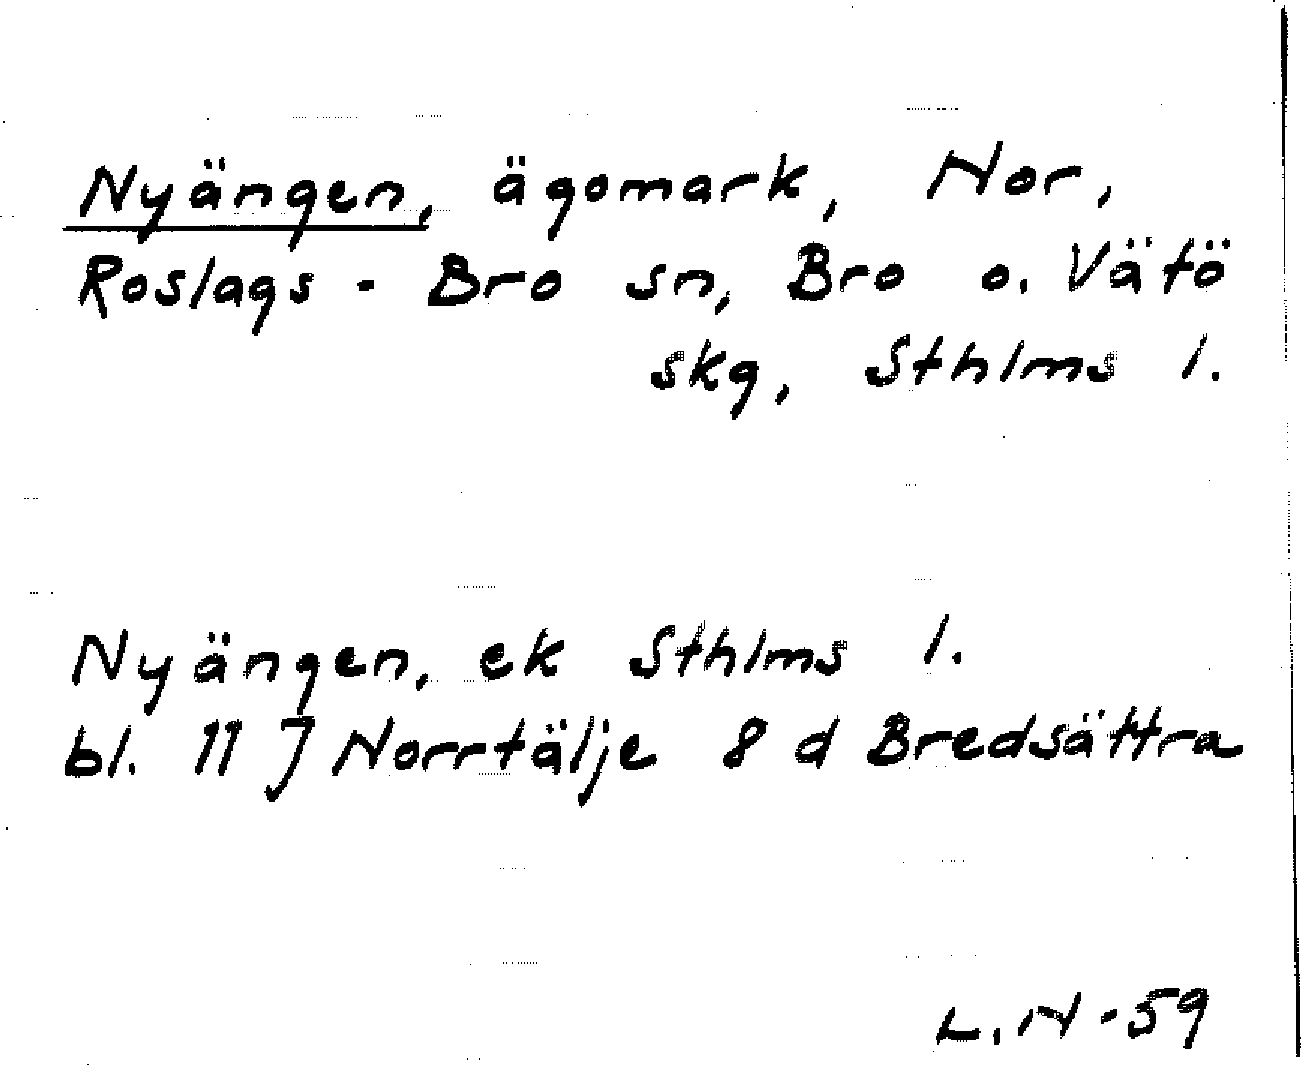 Nyängen, ägomark, Nor,
Roslags - Bro sn, Bro o. Vätö
skg, Sthlms l.
Nyängen, ek Sthlms l.
bl. 11 J Norrtälje 8 d Bredsättra
L.N-59